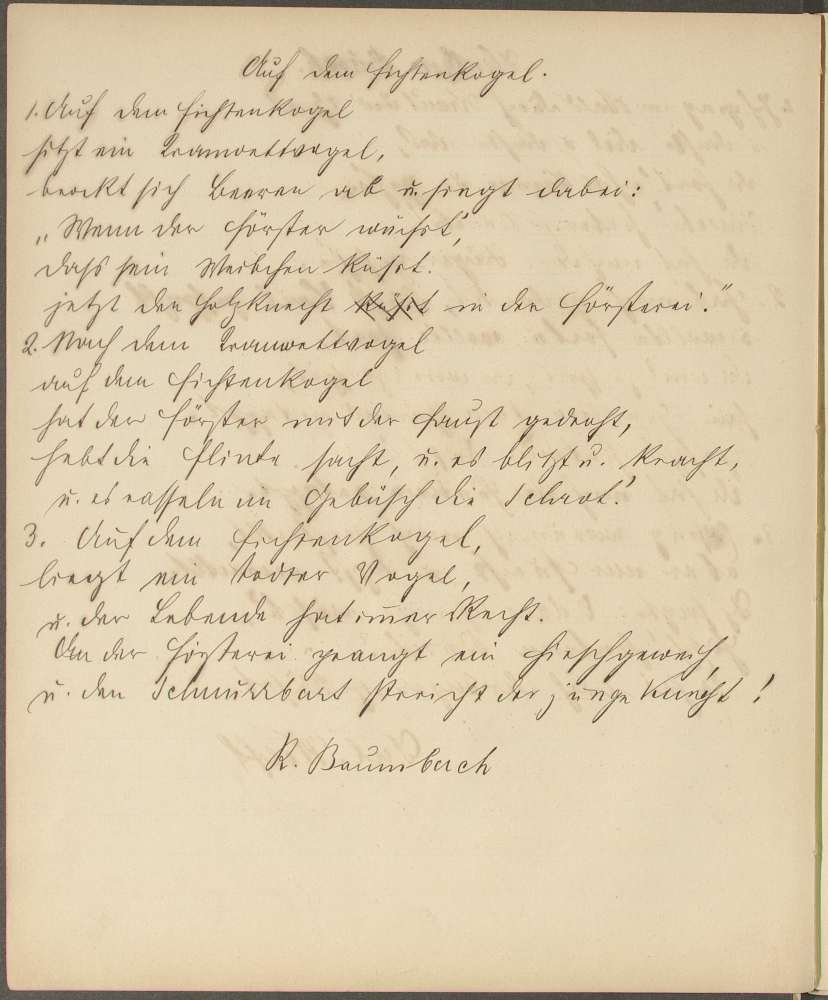 Auf dem Fichtenkogel.
1. Auf dem Fichtenkogel
sitzt ein Kramvettvogel,
brockt sich Beeren ab u. singt dabei:
„Wenn der Förster wüßt,
daß sein Weibchen küßt.
jetzt den Holzknecht küßt in der Försterei."
2. Nach dem Kramvettvogel
auf dem Fichtenkogel
hat der Förster mit der Faust gedroht,
hebt die Flinte sacht, u. es blitzt u. kracht,
u. es rasseln im Gebüsch die Schrot.
3. Auf dem Fichtenkogel,
liegt ein todter Vogel,
u. der Lebende hat immer Recht.
An der Försterei prangt ein Hirschgeweih,
u. den Schnurrbart streicht der junge Knecht!
R. Baumbach